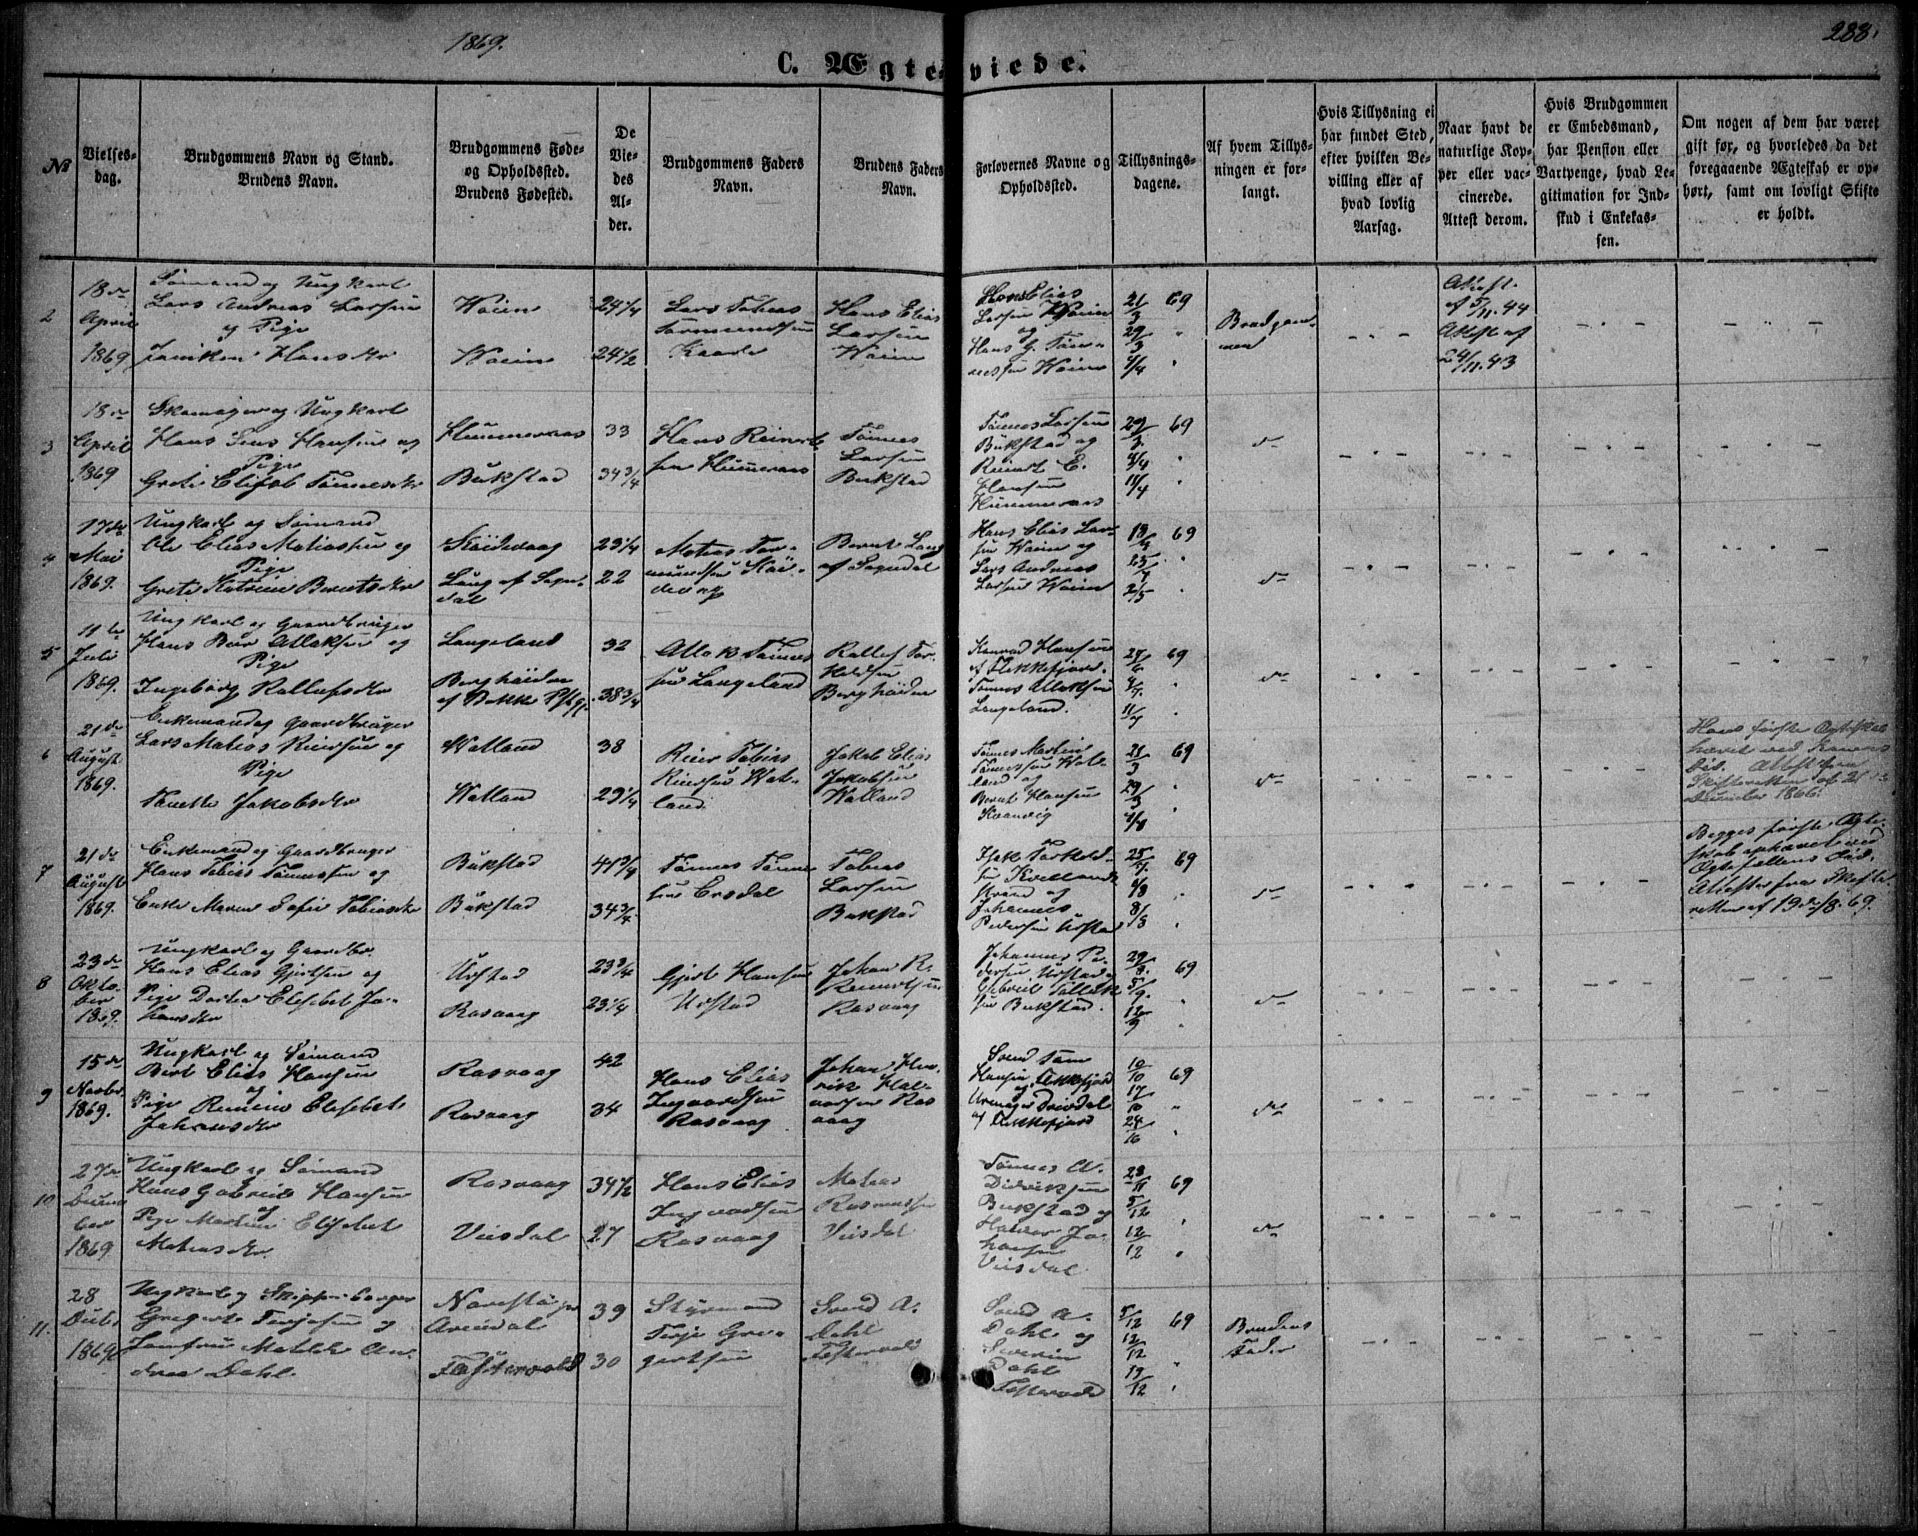 1869.
288.
C. Ægteviede.
No
Vielses-
dag.
Brudgommens Navn og Stand.
Brudens Navn.
Brudgommens Føde-
og Opholdssted.
Brudens Fødested.
De
Vie-
des
Al-
der.
Brudgommens Faders
Navn.
Brudens Faders
Navn.
Forlovernes Navne og
Opholdssted.
Tillysnings-
dagene.
Af hvem Tillys-
ningen er for-
langt.
Hvis Tillysning ei
har fundet Sted,
efter hvilken Be-
villing eller af
hvad lovlig
Aarsag.
Naar havt de
naturlige Kop-
per eller vac-
cinerede.
Attest derom.
Hvis Brudgommen
er Embedsmand,
har Pension eller
Vartpenge, hvad Le-
gitimation for Ind-
skud i Enkekas-
sen.
Om nogen af dem har været
gift før, og hvorledes da det
foregaaende Ægteskab er op-
hørt, samt om lovligt Skifte
er holdt.
2
18de
April
1869
Sømand og Ungkarl
Lars Andreas Larsen
og Pige
Hansdtr
24 1/4
24 1/2
Lars Tobias
Hans Elias
Larsen
Hans Elias
Larsen
og
Hans G. Tøn-
21/3 69
29/3
4/4
Brudgom-
men
Attest
af 5/11.44
Attest af
24/11.43
3
18de
April
1869
Skomager og Ungkarl
Hans Jens Hansen og
Pige
Grete Elisab. Tønnesdtr
Hummeraas
Bukstad
33
34 3/4
Hans Reinert-
sen Hummeraas
Tønnes
Larsen
Bukstad
Tønnes Larsen
Bukstad og
Reindt E.
Hansen
Hummeraas
29/3 69
4/4
11/4
do
4
17de
Mai
1869.
Ungkarl og Sømand
Ole Elias Matiassen og
Pige
Grete Katrine Berntsdtr
Laug af Sogn-
dal
23 1/4
22
Bernt Laug
af Sogndal
Hans Elias Lar-
sen
og
Lars Andreas
Larsen
18/4 69
25/4
2/5
do
5
11te
Juli
1869.
Ungkarl og Gaardbruger
Hans Atlaksen og
Pige
Ingeborg Rallefsdtr
Langeland
Berghøiden
af Bakke
32
38 3/4
Atlak Tønnes-
sen Langeland
Rallef Tor-
Berghøiden
Konrad Hansen
af Flekkefjord.
Tønnes Atlaksen
Langeland.
27/6 69
4/7
11/7
do
6
21de
August
1869.
Enkemand og Gaardbruger
Lars Matias Reiersen og
Pige
Jakobsdtr
Watland
Watland
38
23 1/4
Reier Tobias
Reiersen Wat-
land.
Jakob Elias
Jakobsen
Watland
Tønnes Martin
Tønnessen Wat-
land og
Bernt Hansen
21/3 69
29/3
4/4
do
Hans første Ægteskab
hævet ved Konens
Død. Attest fra
Skifteretten af 21
December 1866.
7
21de
August
1869.
Enkemand og Gaardbruger
Hans Tobias Tønnessen og
Enke Maren Sofie Tobiasdtr
Bukstad
Bukstad
41 3/4
34 3/4
Tønnes Tønnes-
sen Ersdal
Tobias
Larsen
Bukstad
og
Johannes
Pedersen Urstad
25/7 69
1/8
8/8
do
Begges første Ægte-
skab ophævet ved
Ægtefællens Død.
Attester fra Skifte-
retten af 19de/8. 69.
8
23de
Okto-
ber
1869.
Ungkarl og Gaardbr.
Hans Elias Gjertsen og
Pige Dortea Elisebet Jo-
hansdtr
Urstad
Rasvaag
23 3/4
23 1/4
Gjert Hansen
Urstad
Johan R.
Rasvaag
Johannes Pe-
dersen Urstad og
Gabriel Tollak-
sen Bukstad.
29/8. 69
5/9.
12/9
do
9
15de
Novbr
1869.
Ungkarl og Sømand
Bert Elias Hansen
og
Pige Elisebet
Johansdtr
Rasvaag
Rasvaag
42
34
Hans Elias
Ingvardsen
Rasvaag
Johan Hen-
rik Hal-
vorsen Ras-
vaag
Svend Tøm
Hansen Flekkefjord
og
af Flekkefjord
10/10 69
17/10
24/10
do
10
27de
Decem-
ber
1869
Ungkarl og Sømand
Hans Gabriel Hansen
og
Pige Martine Elisebet
Matiasdtr.
Rasvaag
Viisdal
34 1/2
27
Hans Elias
Ingvardsen
Rasvaag
Matias
Rasmussen
Viisdal
Tønnes A.
Didriksen
Bukstad og
Jo-
hansen
Viisdal
28/11 69
5/12
12/12
do
11.
28
Decbr
1869
Ungkarl og Skipperborger
Gregert Terjesen og
Jomfru Matilde An-
drea Dahl.
Arendal
39
30
Styrmand
Terje Gre-
gertsen
Svend A.
Dahl
Svend A.
Dahl og
Severin
Dahl
5/12 69
12/12
19/12
Brudens
Fader